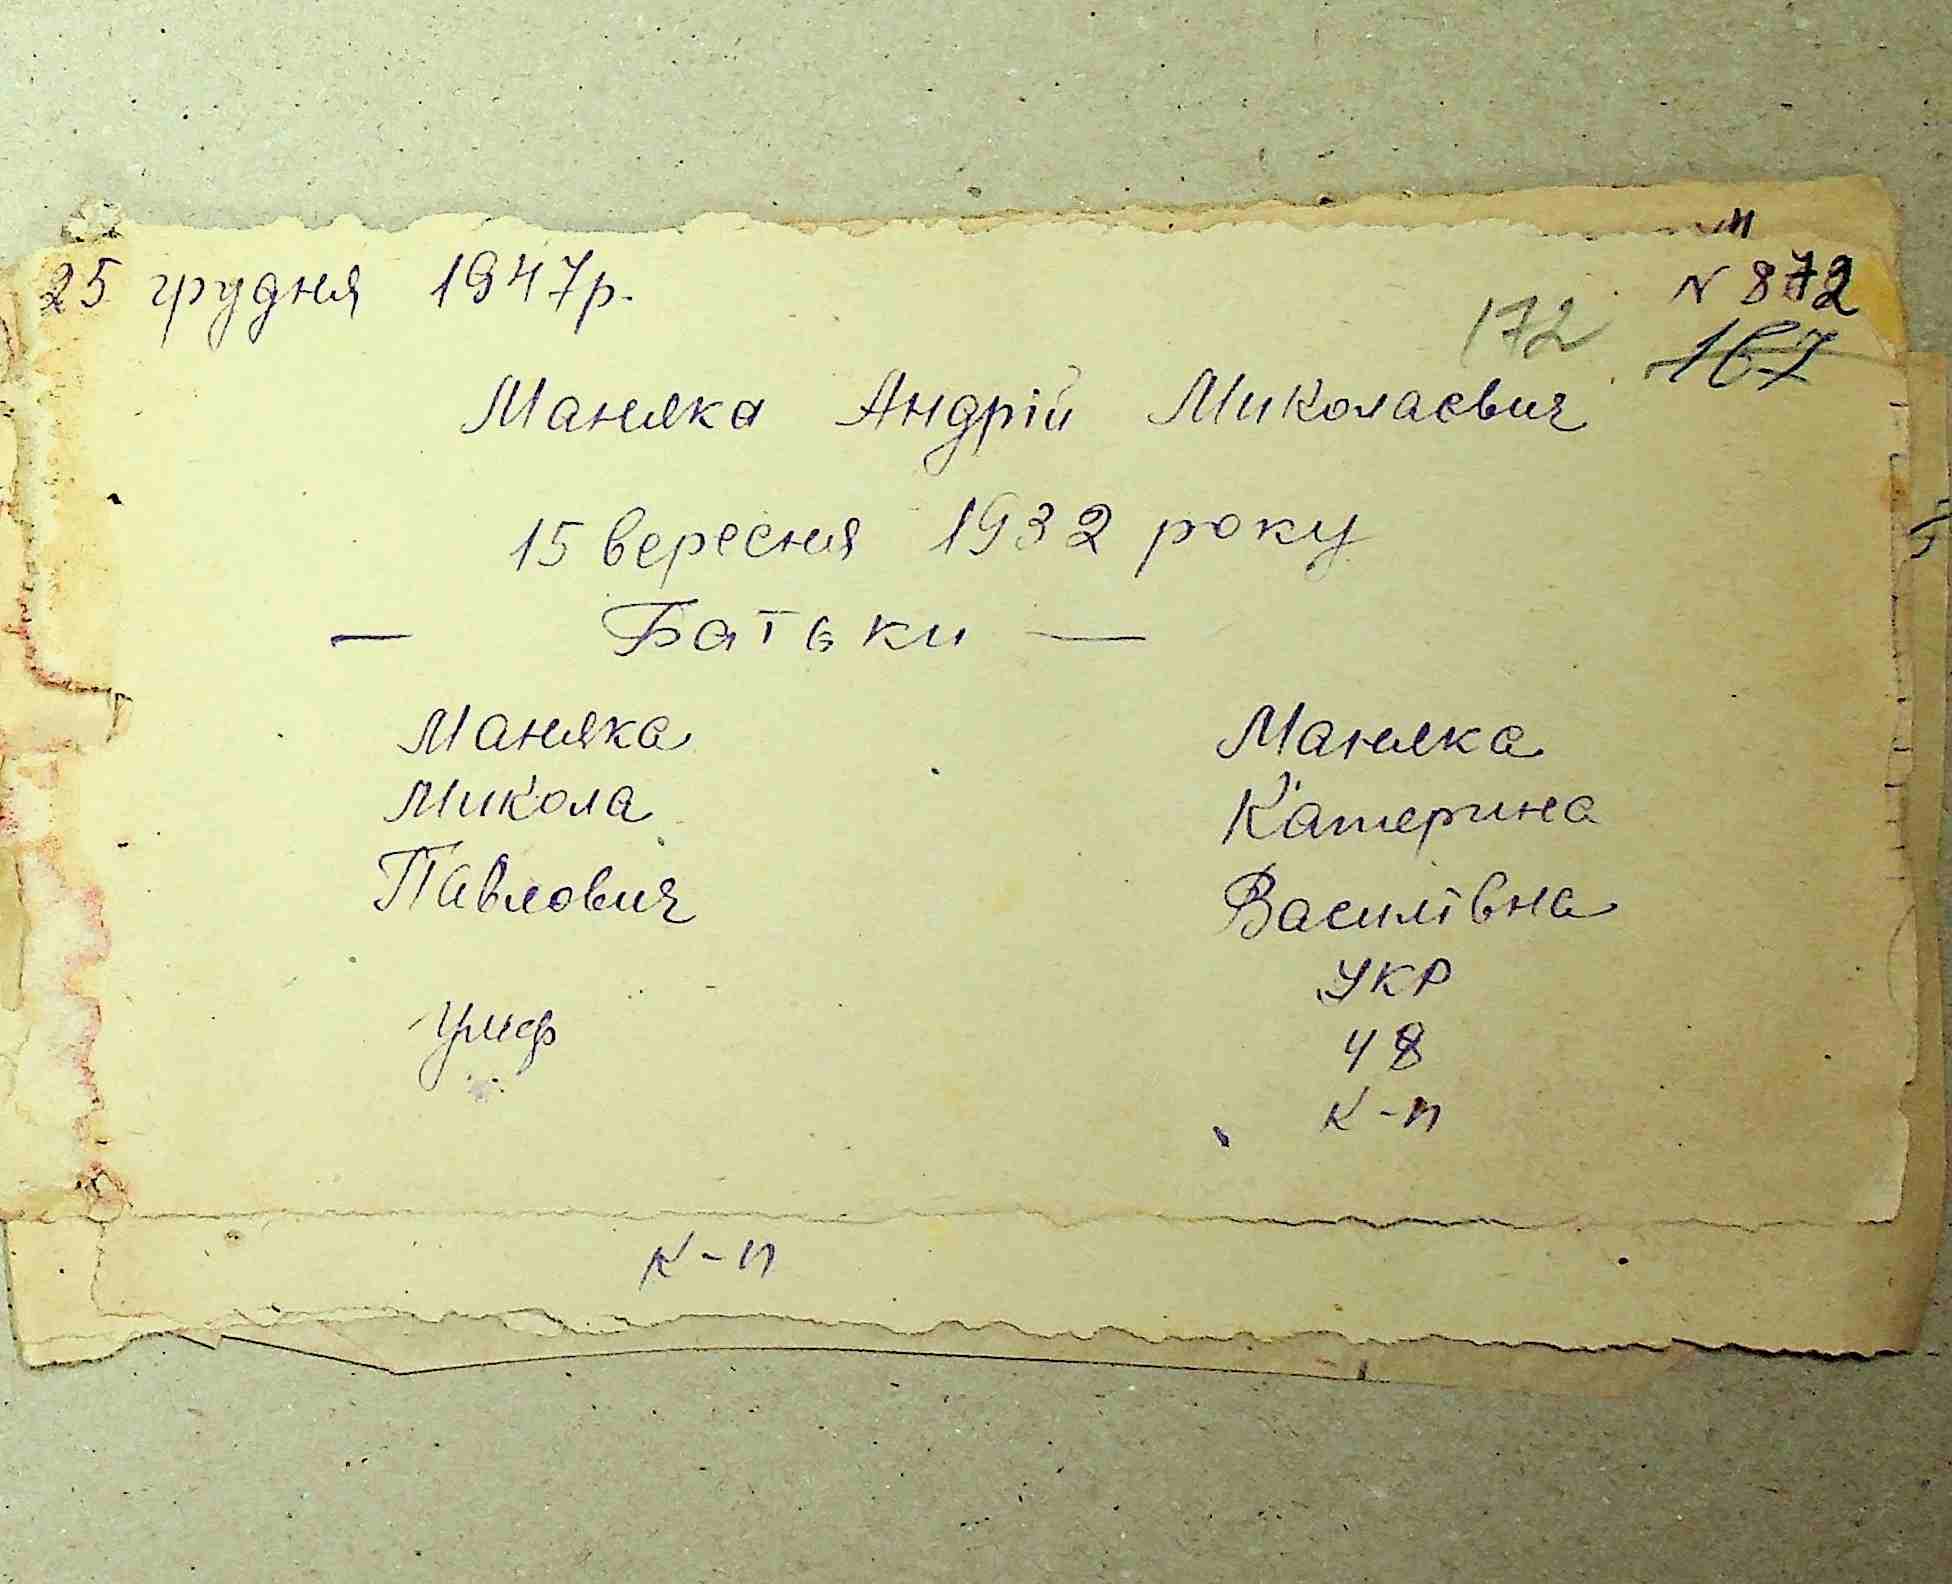 25 грудня 1947р.
N 872
172
167
Маняка Андрій Миколаєвич
15 вересня 1932 року
— Батьки —
Маняка Маняка
Микола Катерина
Павлович Василівна
УКР
48
к-п
к-п